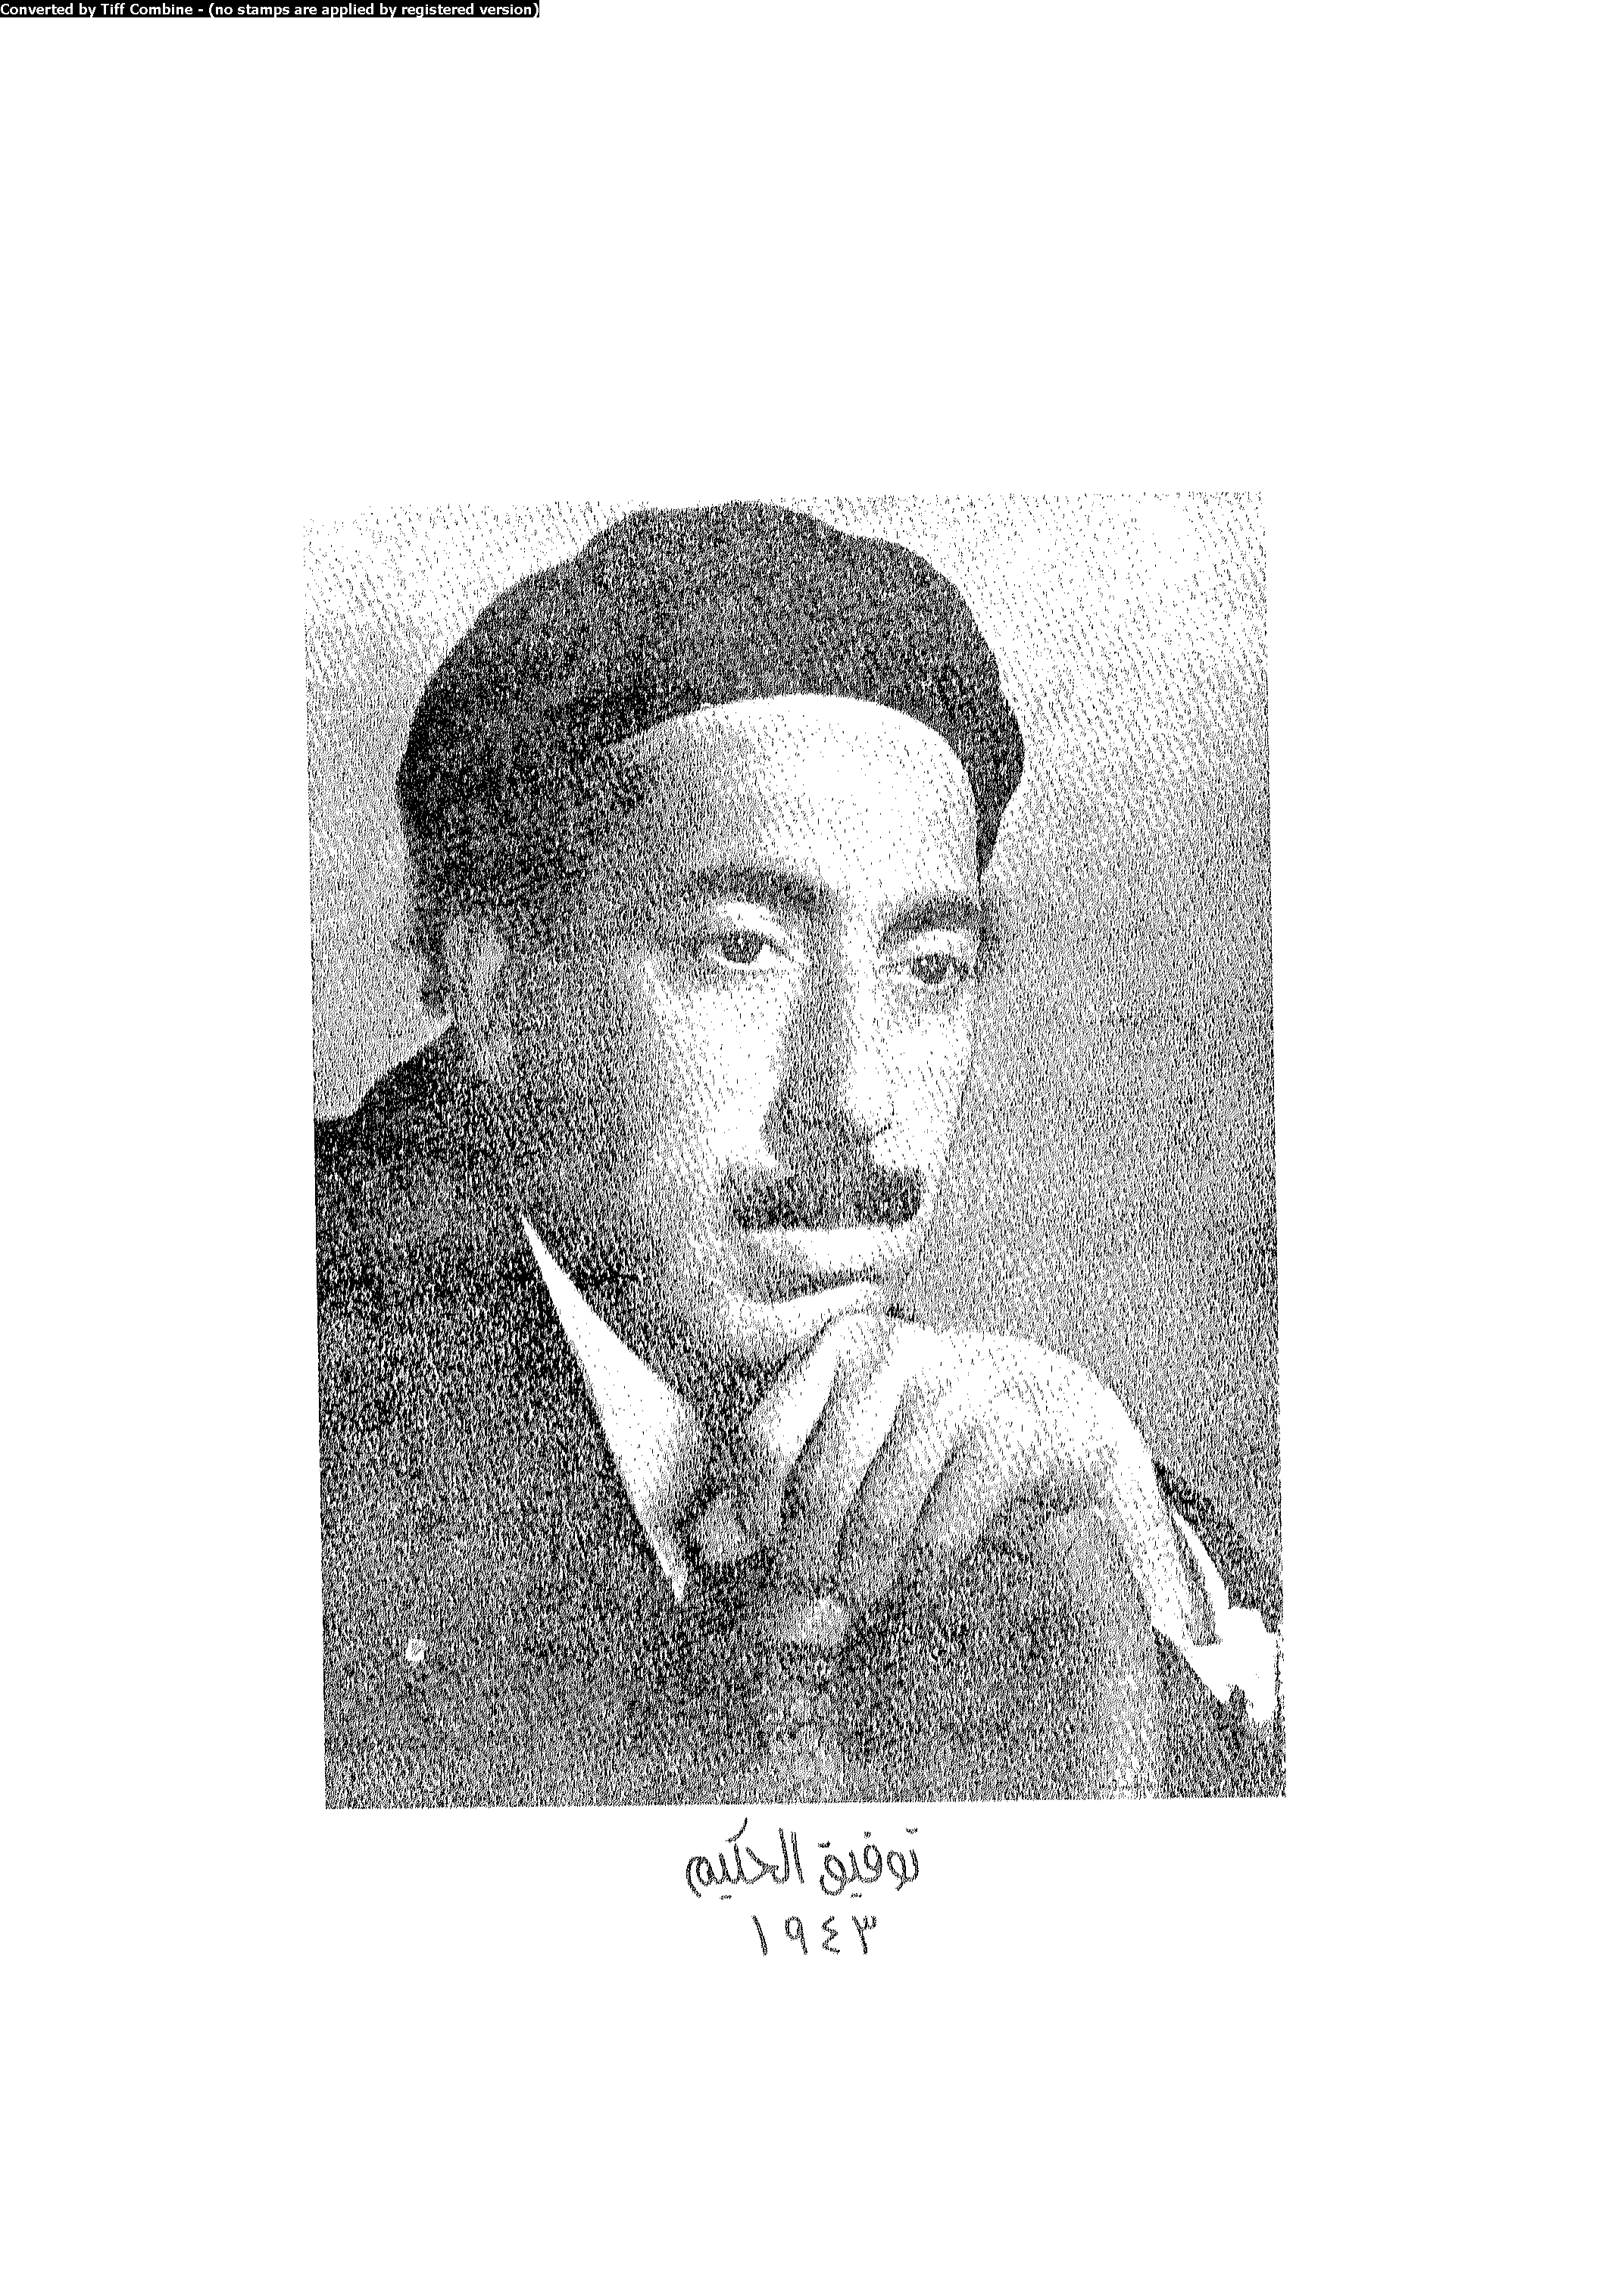 Converted by Tiff Combine - (no stamps are applied by registered version)
توفيق الحكيم
١٩٤٣